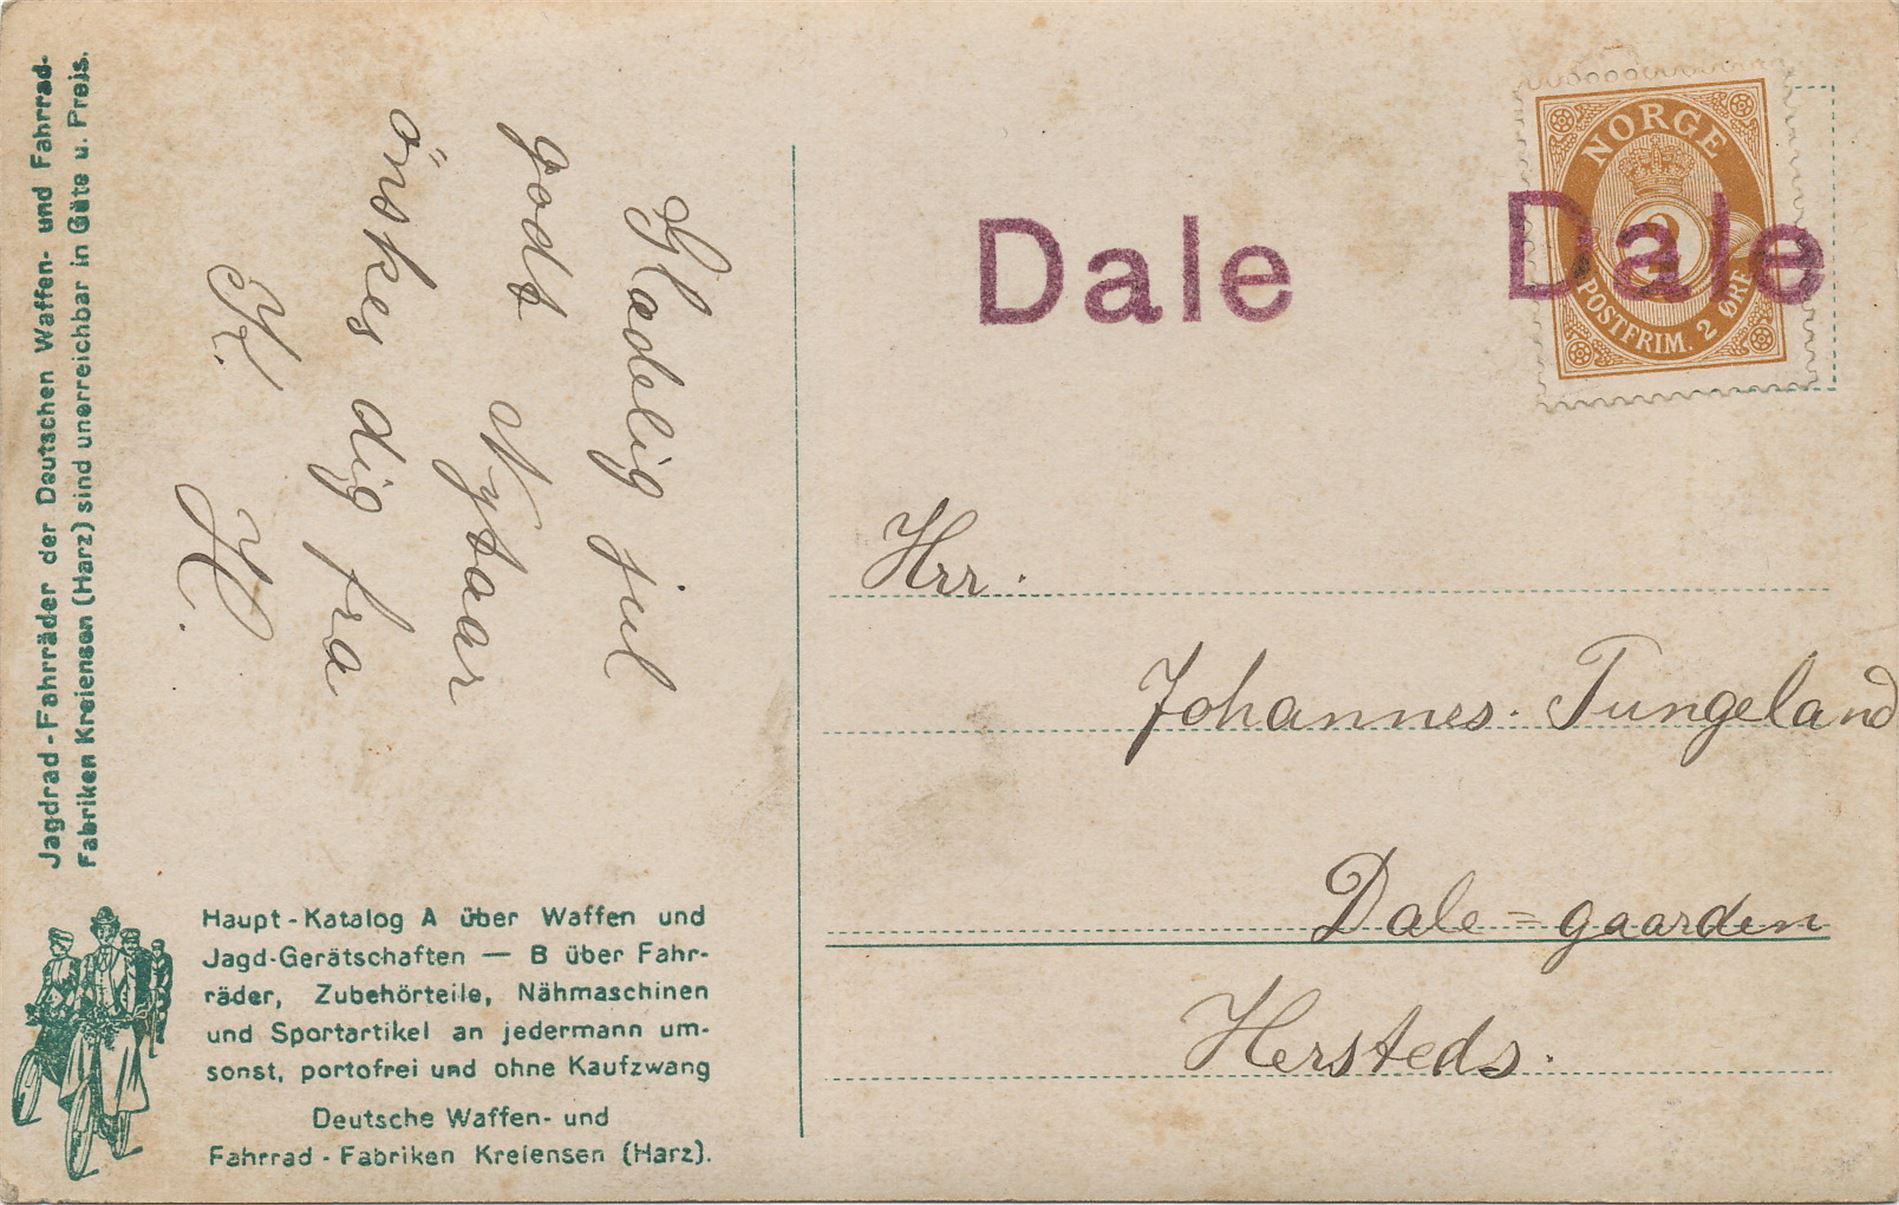 Jagdrad-Fahrräder der Deutschen Waffen- und Fahrrad-
Fabriken Kreiensen (Harz) sind unerreichbar in Güte u. Preis.
Glædelig jul
godt Nytaar
önskes dig fra
K. H.
Haupt-Katalog A über Waffen und
Jagd-Gerätschaften — B über Fahr-
räder, Zubehörteile, Nähmaschinen
und Sportartikel an jedermann um-
sonst, portofrei und ohne Kaufzwang
Deutsche Waffen- und
Fahrrad-Fabriken Kreiensen (Harz).
Dale
Dale
NORGE
2
POSTFRIM. 2 ØRE
Hrr.
Johannes. Tungeland
Dale=gaarden
Hersteds.